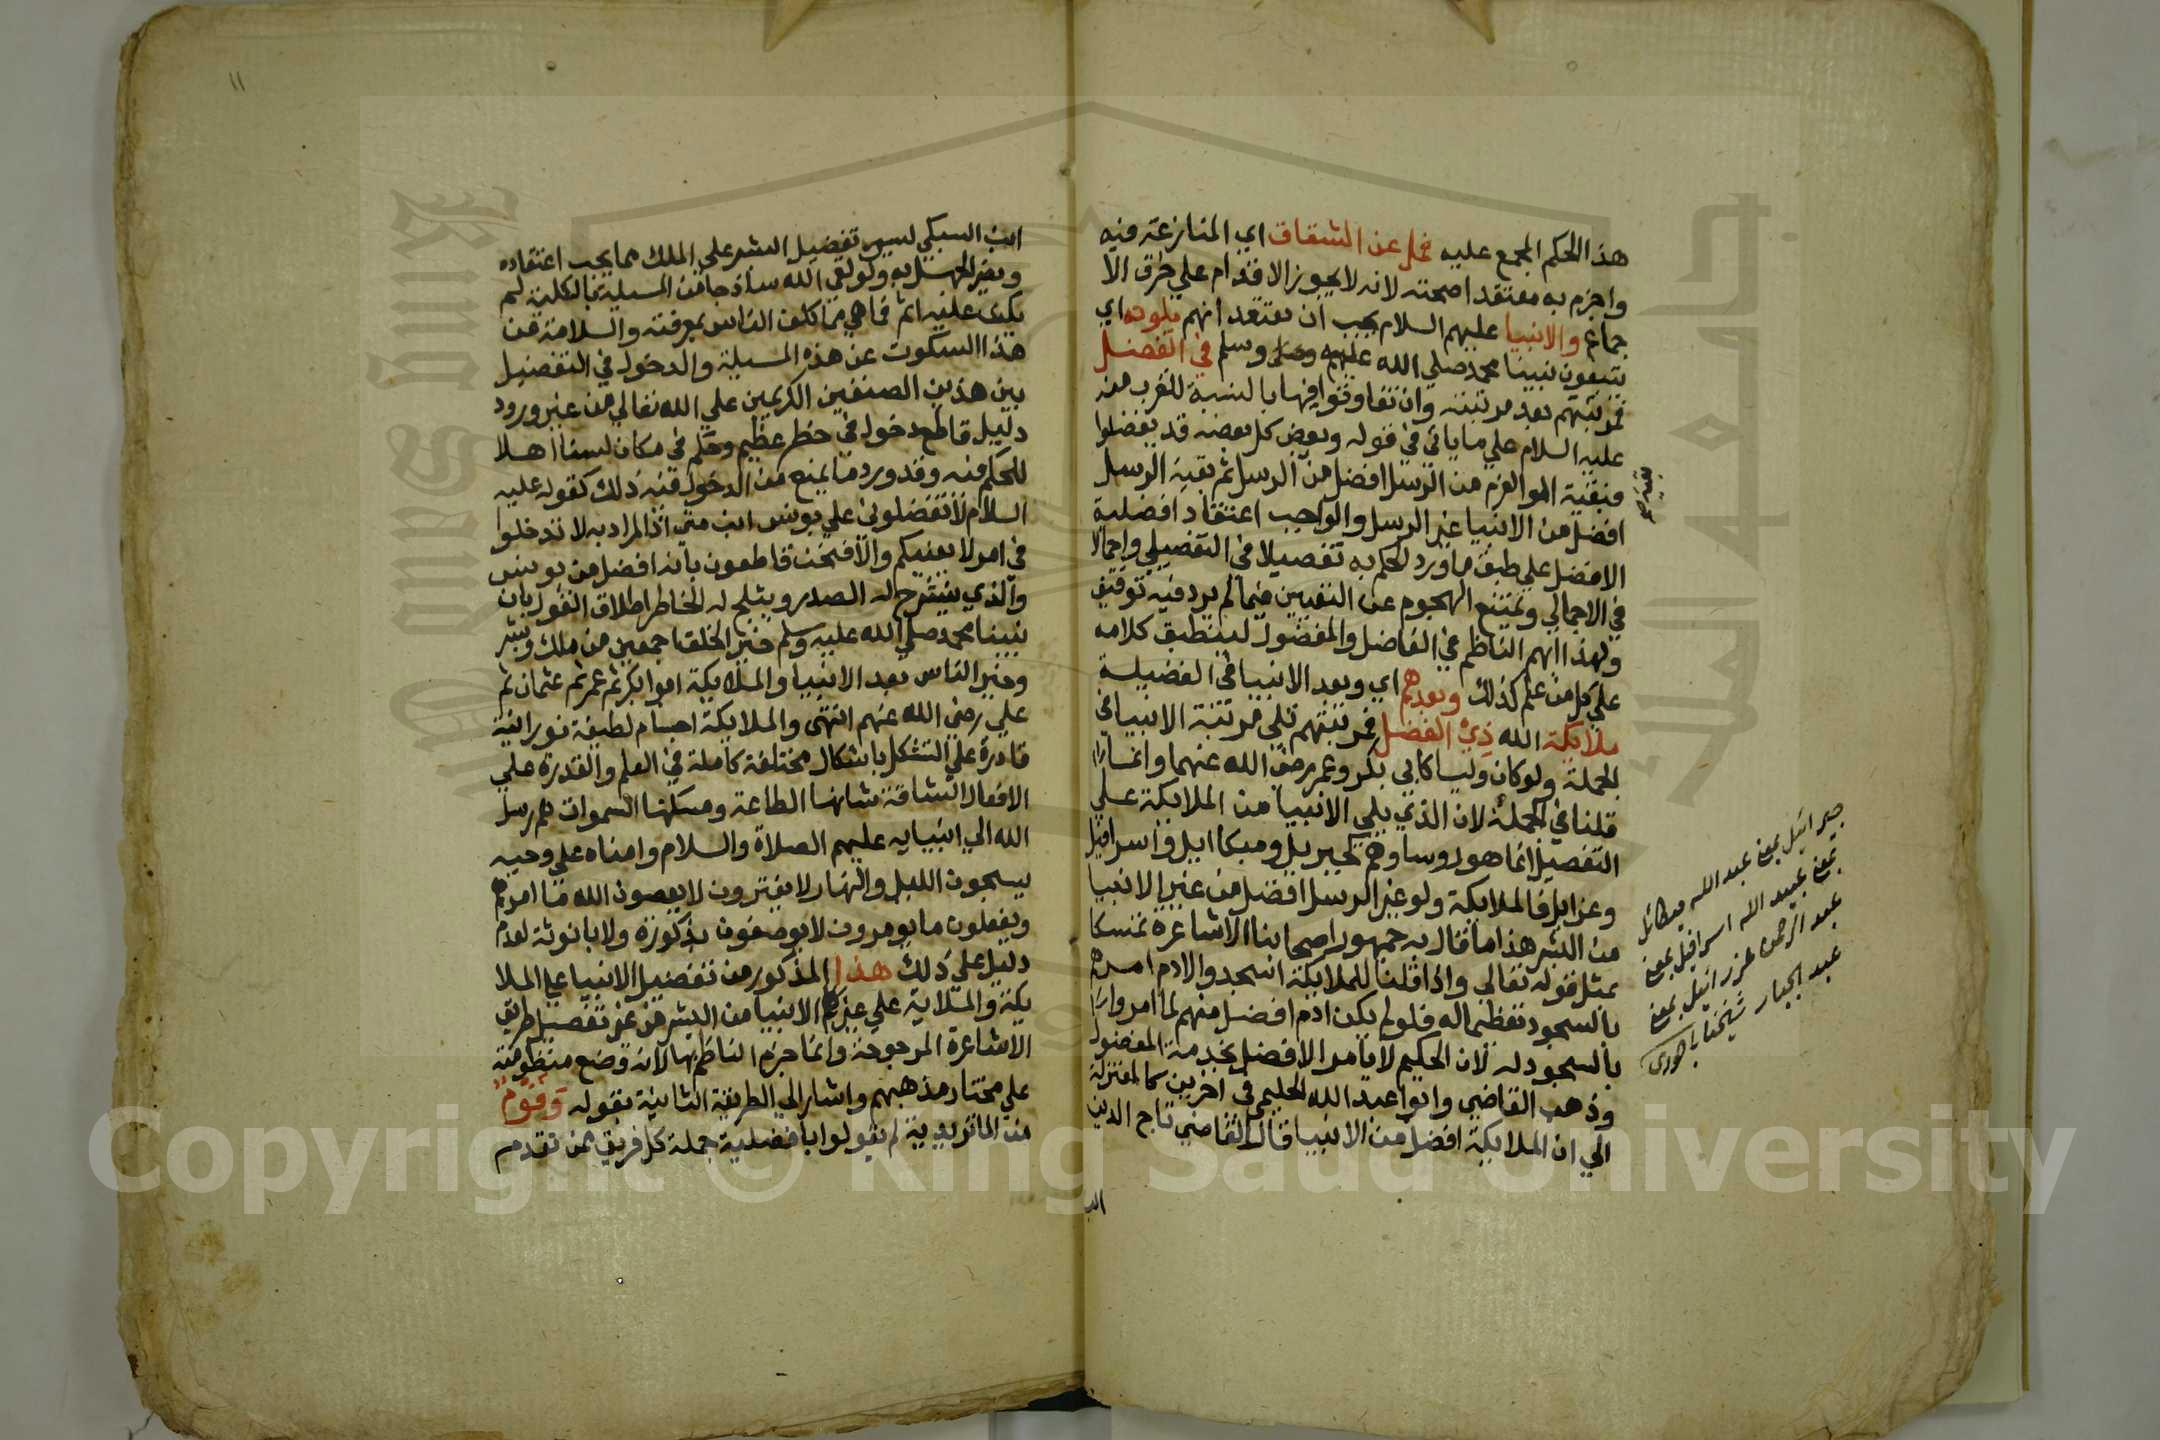 هذا الحكم المجمع عليه فمل عن الشقاق اي المنازعة فيه
واجزم به معتقدا صحته لانه لا يجوز الاقدام علي خرق الا
جماع والانبيا عليهم السلام يجب ان نعتقد انهم يلونه اي
يتبعون نبينا محمد صلي الله عليه وسلم في الفضل
فمرتبتهم بعد مرتبته وان تفاوتوا فيها بالنسبة للقرب منه
عليه السلام علي ما ياتي في قوله وبعض كل بعضه قد يفضلوا
فبقية اولوا العزم من الرسل افضل من الرسل ثم بقية الرسل
افضل من الانبيا غير الرسل والواجب اعتقاد افضلية
الافضل علي طبق ما ورد الحكم به تفصيلا في التفصيلي واجمالا
في الاجمالي ويمتنع الهجوم عن التعيين فيما لم يرد فيه توقيف
ولهذا ابهم الناظم في الفاضل والمفضول لينطبق كلامه
علي كل من علم كذلك وبعدهم اي وبعد الانبيا في الفضيلة
ملايكة الله ذي الفضل فمرتبتهم تلي مرتبة الانبيا في
الجملة ولو كان وليا كابي بكر وعمر رضي الله عنهما وانما
قلنا في الجملة لان الذي يلي الانبيا من الملايكة علي
التفصيل انما هو روساوهم كجبريل وميكاايل واسرافيل
وعزايل فالملايكة ولو غير الرسل افضل من غير الانبيا
من البشر هذا ما قال به جمهور اصحابنا الاشاعرة تمسكا
بمثل قوله تعالي واذ قلنا للملايكة اسجدوا لادم امرهم
بالسجود تعظيما له فلو لم يكن ادم افضل منهم لما امروا
بالسجود له لان الحكيم لا يامر الافضل بخدمة المفضول
وذهب القاضي وابو عبد الله الحليمي في اخرين كالمعتزلة
الي ان الملايكة افضل من الانبيا قال القاضي تاج الدين
ابن
جبرائيل يمون عبد الله ميكائل
يمون عبيد الله اسرافيل يمون
عبد الرحمن عزرائيل يمون
عبد الجبار شيخنا باجوري
١١
ابن السبكي ليس تفضيل البشر علي الملك مما يجب اعتقاده
ويضر الجهل به ولو لقي الله ساذجا من المسيلة بالكلية لم
يكن عليه اثم فما هي مما كلف الناس بمعرفته والسلامة من
هذا السكوت عن هذه المسيلة والدخول في التفضيل
بين هذين الصنفين الكريمين علي الله تعالي من غير ورود
دليل قاطع دخول في خطر عظيم وحكم في مكان لسنا اهلا
للحكم فيه وقد ورد ما يمنع من الدخول فيه ذلك كقوله عليه
السلام لا تفضلوني علي يونس ابن متي اذ المراد به لا تدخلوا
في امر لا يعنيكم والا فنحن قاطعون بانه افضل من يونس
والذي ينشرح له الصدر ويثلج له الخاطر اطلاق القول بان
نبينا محمد صلي الله عليه وسلم خير الخلق اجمعين من ملك وبشر
وخير الناس بعد الانبيا والملايكة ابوا بكر ثم عمر ثم عثمان ثم
علي رضي الله عنهم انتهي والملايكة اجسام لطيفة نورانية
قادرة علي التشكل باشكال مختلفة كاملة في العلم والقدرة علي
الافعال الشاقة شانها الطاعة ومسكنها السموات هم رسل
الله الي انبيايه عليهم الصلاة والسلام وامناه علي وحيه
يسبحون الليل والنهار لا يفترون لا يعصون الله ما امرهم
ويفعلون ما يومرون لا يوصفون بذكورة ولا بانوثة لعدم
دليل علي ذلك هذا المذكور من تفضيل الانبيا علي الملا
يكة والملاية علي غير الانبيا من البشر من غير تفصيل طريق
الاشاعرة المرجوحة وانما جزم الناظم بها لانه وضع منظومته
علي مختار مذهبهم واشار الي الطريقة الثانية بقوله وقوم
من الماتريدية لم يقولوا بافضلية جملة كل فريق ممن تقدم
Copyright © King Saud University